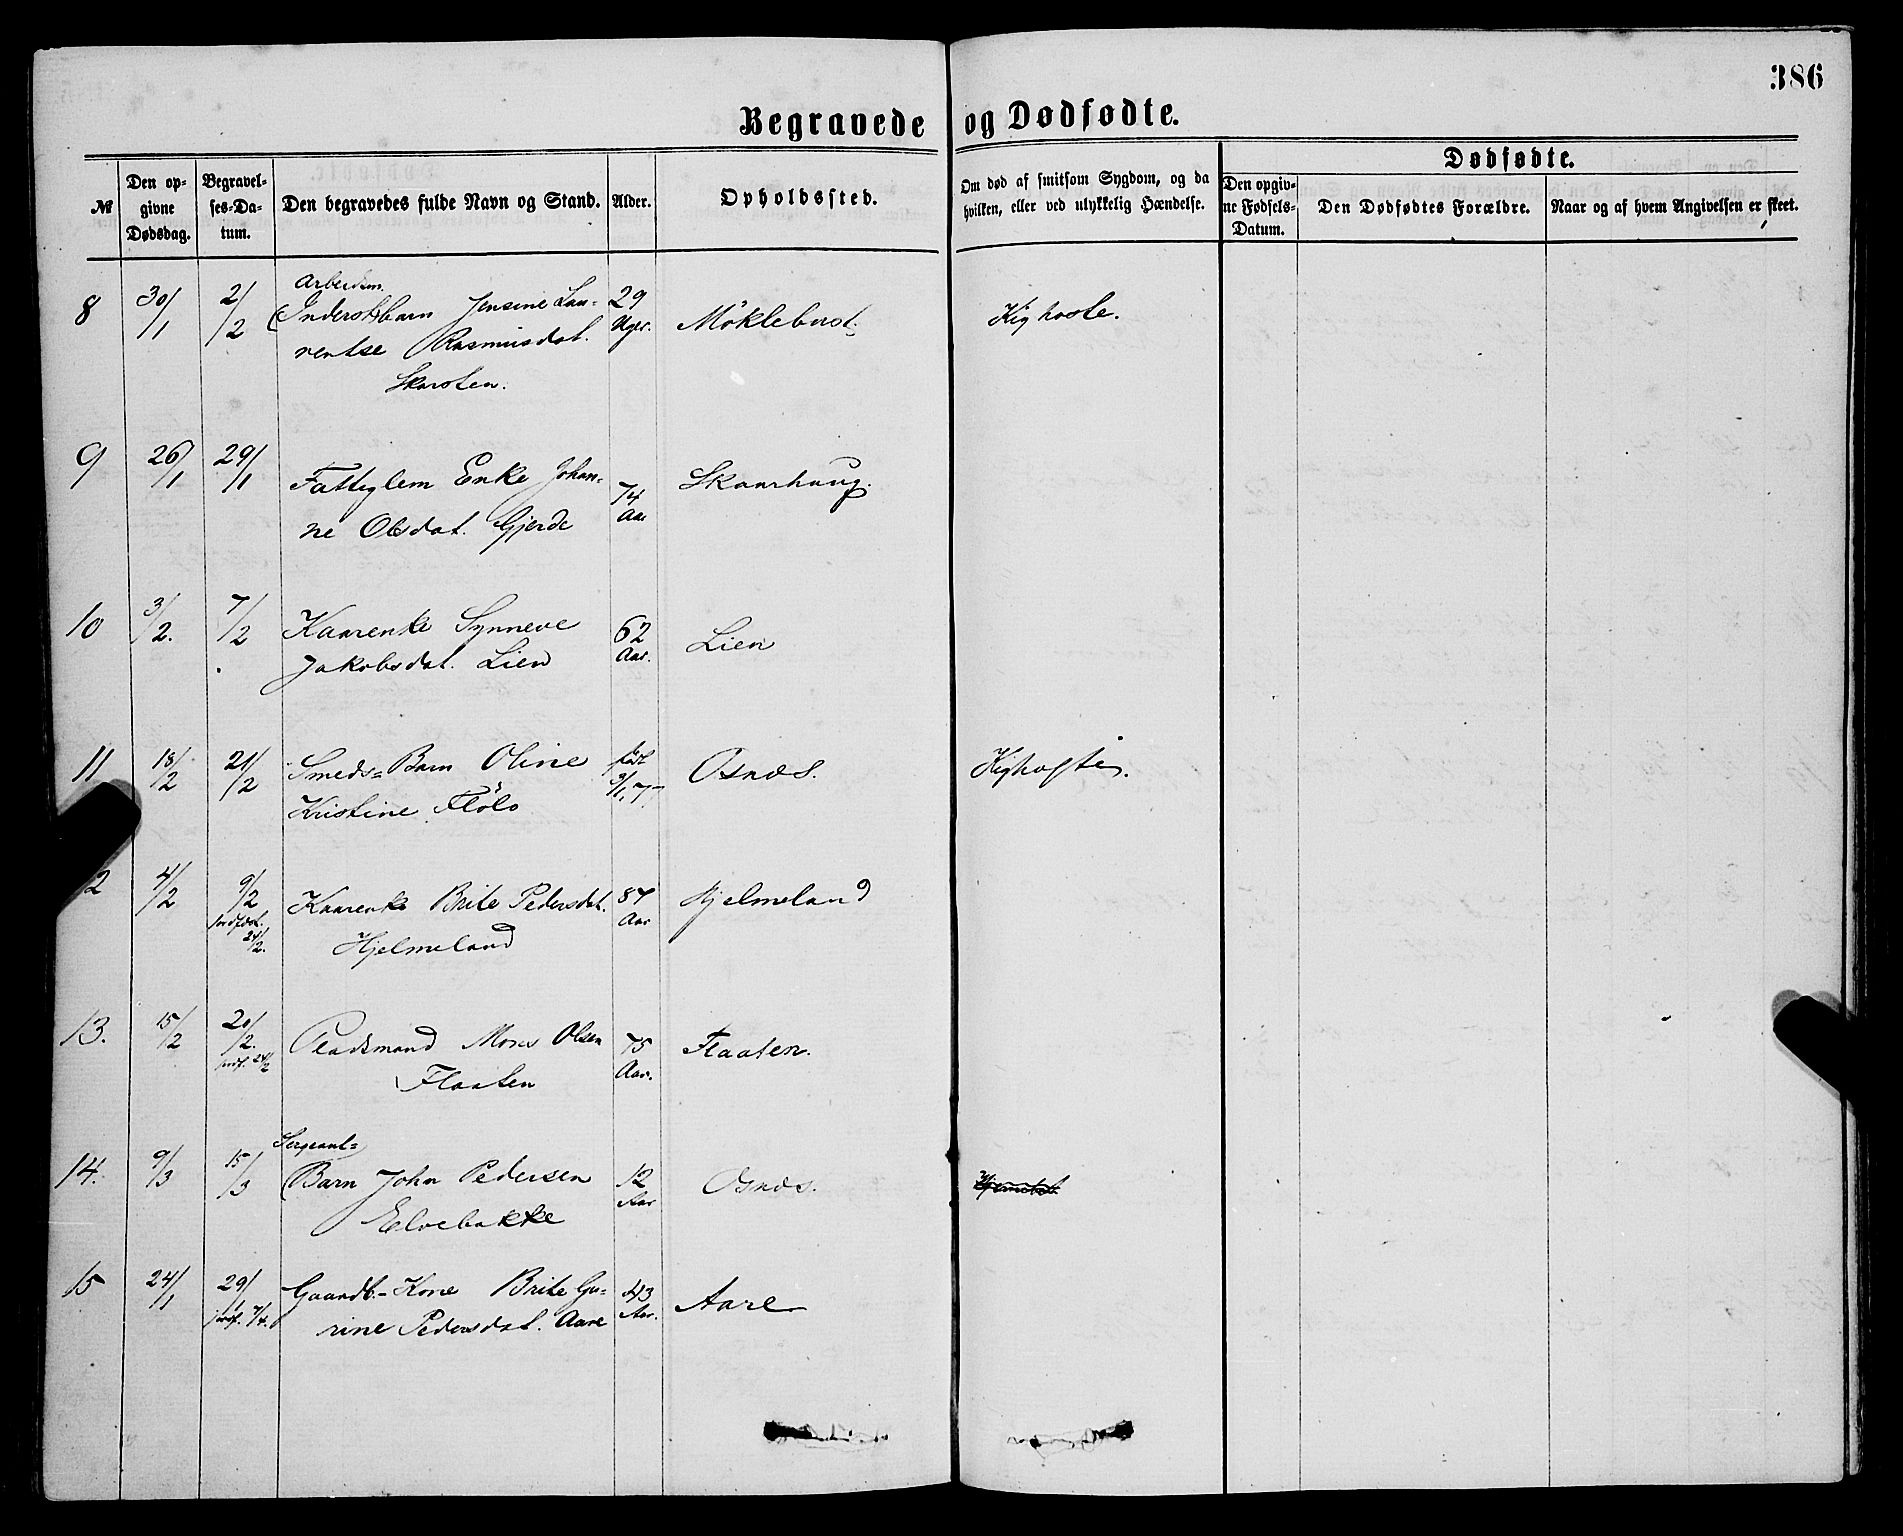 386
Begravede og Dødfødte.
№
Den op-
givne
Dødsdag.
Begravel-
ses-Da-
tum.
Den begravedes fulde Navn og Stand.
Alder.
Opholdssted.
Om død af smitsom Sygdom, og da
hvilken, eller ved ulykkelig Hændelse.
Dødfødte.
Den opgiv-
ne Fødsels-
Datum.
Den Dødfødtes Forældre.
Naar og af hvem Angivelsen er skeet.
8 30/1 2/2 Arbeidsm.
Inderstbarn Jensine Lau- 29 Møklebust. Kighoste.
rentse Rasmusdat. Uger.
Skarsten.
9 26/1 29/1 Fatteglem Enke Johan- 74 Skaarhaug.
ne Olsdat. Gjerde Aar
10 3/2. 7/2 Kaarenke Synneve 62 Lien
Jakobsdat. Lien Aar.
11 18/2 21/2 Smeds-Barn Oline født Osnæs. Kighoste.
Kristine Flölo 9/1,77
12 4/2 9/2 Kaarenke Brite Pedersdat. 87 Hjelmeland
jordfæst. 24/2. Hjelmeland Aar
13. 15/2 20/2. Pladsmand Mons Olsen 75 Flaaten.
jordf. 24/2 Flaaten Aar.
14. 9/3 15/3 Sergeant-
Barn John Pedersen 12 Osnæs.
Elvebakke Aar
15 24/1 29/1 Gaardb.-Kone Brite Gu- 43 Aare
jordf. 7/4. rine Pedersdat. Aare Aar.